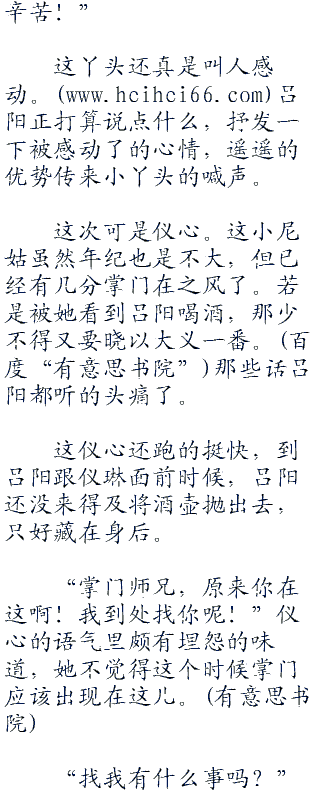 辛苦！”
这丫头还真是叫人感
动。(www.hcihci66.com)吕
阳正打算说点什么，抒发一
下被感动了的心情，遥遥的
优势传来小丫头的喊声。
这次可是仪心。这小尼
姑虽然年纪也是不大，但已
经有几分掌门在之风了。若
是被她看到吕阳喝酒，那少
不得又要晓以大义一番。(百
度“有意思书院”)那些话吕
阳都听的头痛了。
这仪心还跑的挺快，到
吕阳跟仪琳面前时候，吕阳
还没来得及将酒壶抛出去，
只好藏在身后。
“掌门师兄，原来你在
这啊！我到处找你呢！”仪
心的语气里颇有埋怨的味
道，她不觉得这个时候掌门
应该出现在这儿。(有意思书
院)
“找我有什么事吗？”